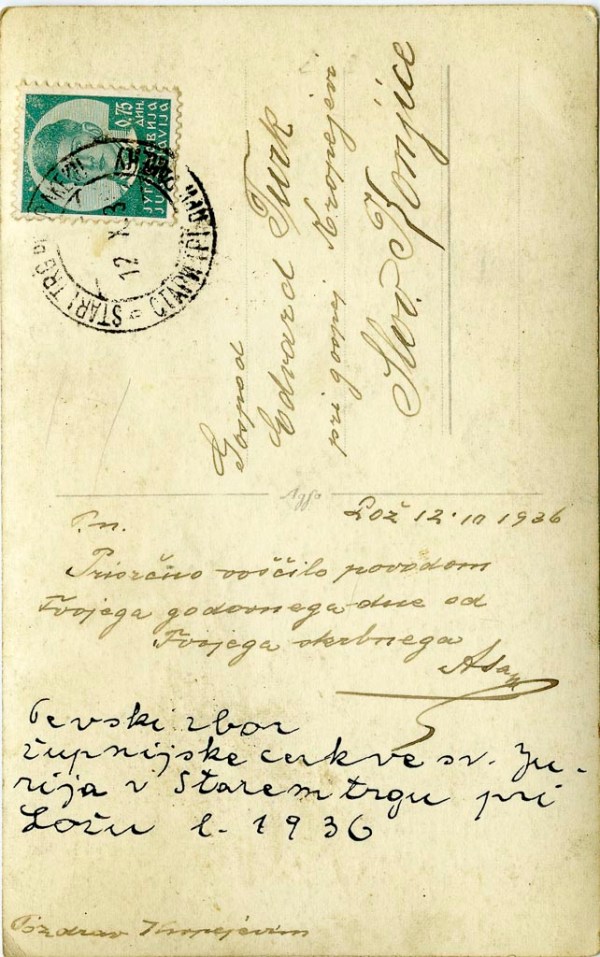 0.75
ДИН.
ЈУГОСЛАВИЈА
JUGOSLAVIJA
STARI TRG
12 X 3
Gospod
Edvard Turk
pri gospej Kropejevi
Slov. Konjice
Lož 12. 10 1936
P. n.
Prisrčno voščilo povodom
Tvojega godovnega dne od
Tvojega skrbnega
Pevski zbor
župnijske cerkve sv. Ju-
rija v Starem trgu pri
Ložu l. 1936
Pozdrav Kropejevim